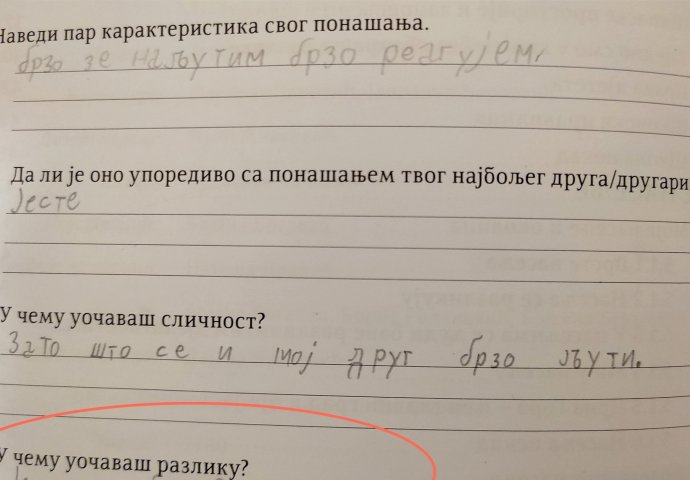 Наведи пар карактеристика свог понашања.
брзо зе наљутим брзо реагујем.
Да ли је оно упоредиво са понашањем твог најбољег друга/другари
Јесте
У чему уочаваш сличност?
Зато што се и мој друг брзо љути.
У чему уочаваш разлику?